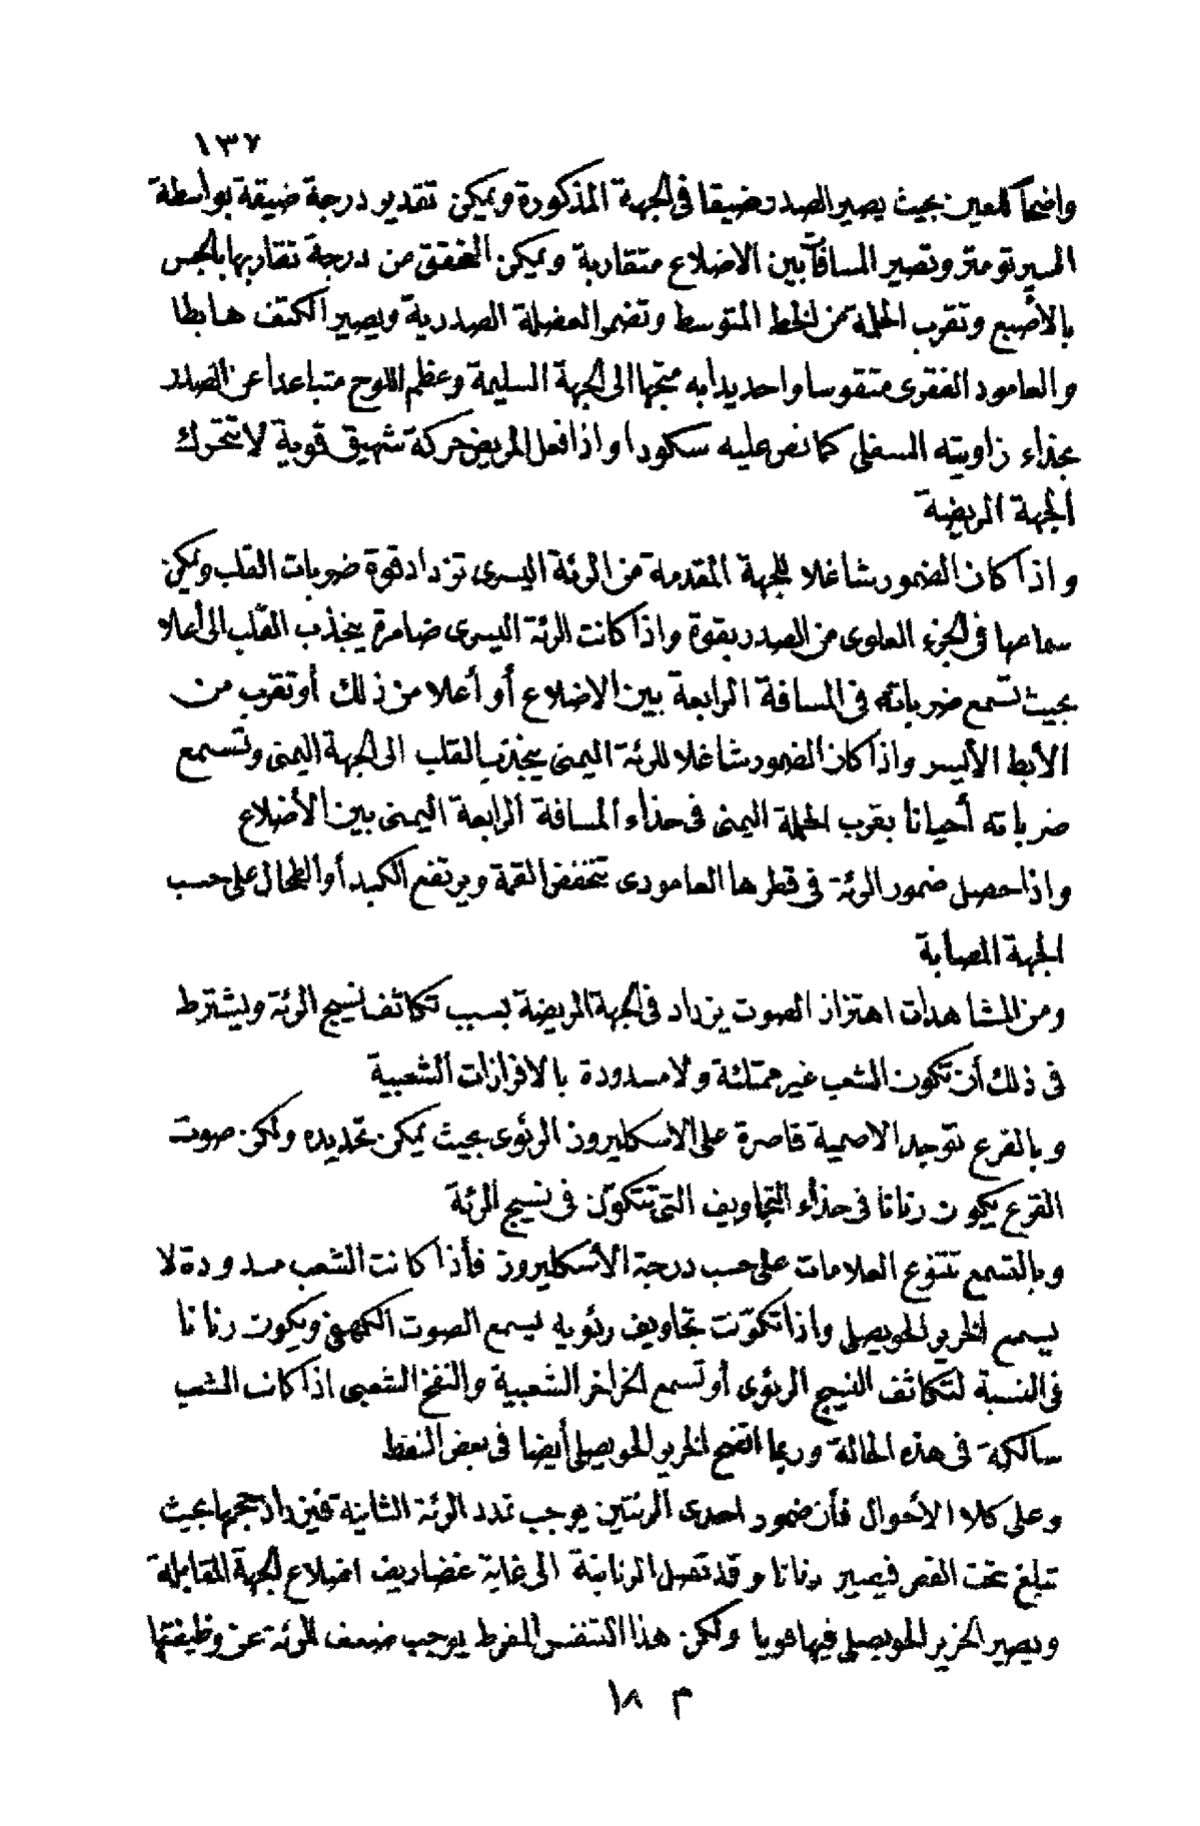 ١٣٧
واضحاً للعين بحيث يصير الصدر ضيقا فى الجهة المذكورة ويمكن تقدير درجة ضيقة بواسطة
السيرتومتر وتصير المسافآت بين الاضلاع متقاربة ويمكن التحقق من درجة تقاربها بالجس
بالأصبع وتقرب الحلمة من الخط المتوسط وتضمر العضلة الصدرية ويصير الكتف هابطا
والعامود الفقرى متقوسا واحديدابه متجها الى الجهة السليمة وعظم اللوح متباعدا عن الصدر
بحذاء زاويته السفلى كما نص عليه سكودا واذا فعل المريض حركة شهيق قوية لا تتحرك
الجهة المريضة
واذا كان الضمور شاغلا للجهة المقدمة من الرئة اليسرى تزداد قوة ضربات القلب ويمكن
سماعها فى الجزء العلوى من الصدر بقوة واذا كانت الرئة اليسرى ضامرة ينجذب القلب الى أعلا
بحيث تسمع ضرباته فى المسافة الرابعة بين الاضلاع أو أعلا من ذلك أو تقرب من
الأبط الأيسر واذا كان الضمور شاغلا للرئة اليمنى ينجذب القلب الى الجهة اليمنى وتسمع
ضرباته أحيانا بقرب الحلمة اليمنى فى حذاء المسافة الرابعة اليمنى بين الأضلاع
واذا حصل ضمور الرئة فى قطرها العامودى تنخفض القمة ويرتفع الكبد أو الطحال على حسب
الجهة المصابة
ومن المشاهدات اهتزاز الصوت يزداد فى الجهة المريضة بسبب تكاثف نسيج الرئة ويشترط
فى ذلك أن تكون الشعب غير ممتلئة ولا مسدودة بالافرازات الشعبية
وبالقرع توجد الاصمية قاصرة على الاسكليروز الرئوى بحيث يمكن تحديده ولكن صوت
القرع يكون رنانا فى حذاء التجاويف التى تتكوّن فى نسيج الرئة
وبالتسمع تتنوع العلامات على حسب درجة الأسكليروز فأذا كانت الشعب مسدودة لا
يسمع الخرير الحويصلى واذا تكوّنت تجاويف رئويه يسمع الصوت الكهفى ويكون رنانا
فى النسبة لتكاثف النيج الرئوى أو تسمع الخراخر الشعبية والنفخ الشعبى اذا كانت الشعب
سالكة فى هذه الحالة وربما اتضح الخرير الحويصلى أيضا فى بعض النقط
وعلى كلا الأحوال فأن ضمور احدى الرئتين يوجب تمدد الرئة الثانية فيزداد حجمها بحيث
تبلغ تحت القص فيصير رنانا وقد تصل الرنانية الى غاية غضاريف اضلاع الجهة المقابلة
ويصير الخرير الحويصلى فيها قويا ولكن هذا التنفس المفرط يوجب ضعف الرئة عن وظيفتها
م ١٨